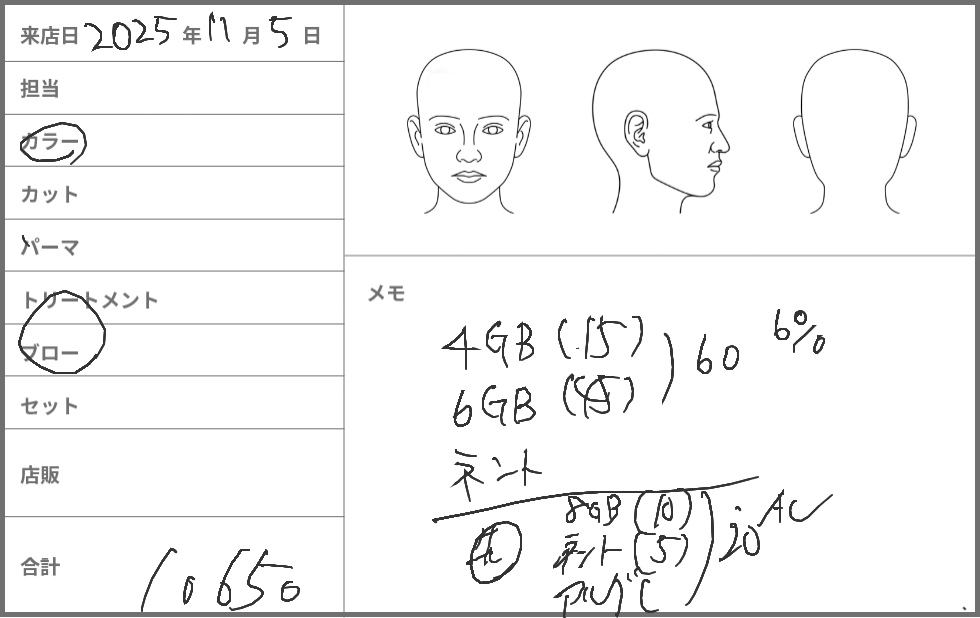 来店日 2025 年 11 月 5 日
担当
カラー
カット
パーマ
トリートメント
ブロー
セット
店販
合計 10650
メモ
4GB (15)
6GB (45) ) 60 6%
ネント
8GB (10)
ネント (5) ) 20 AC